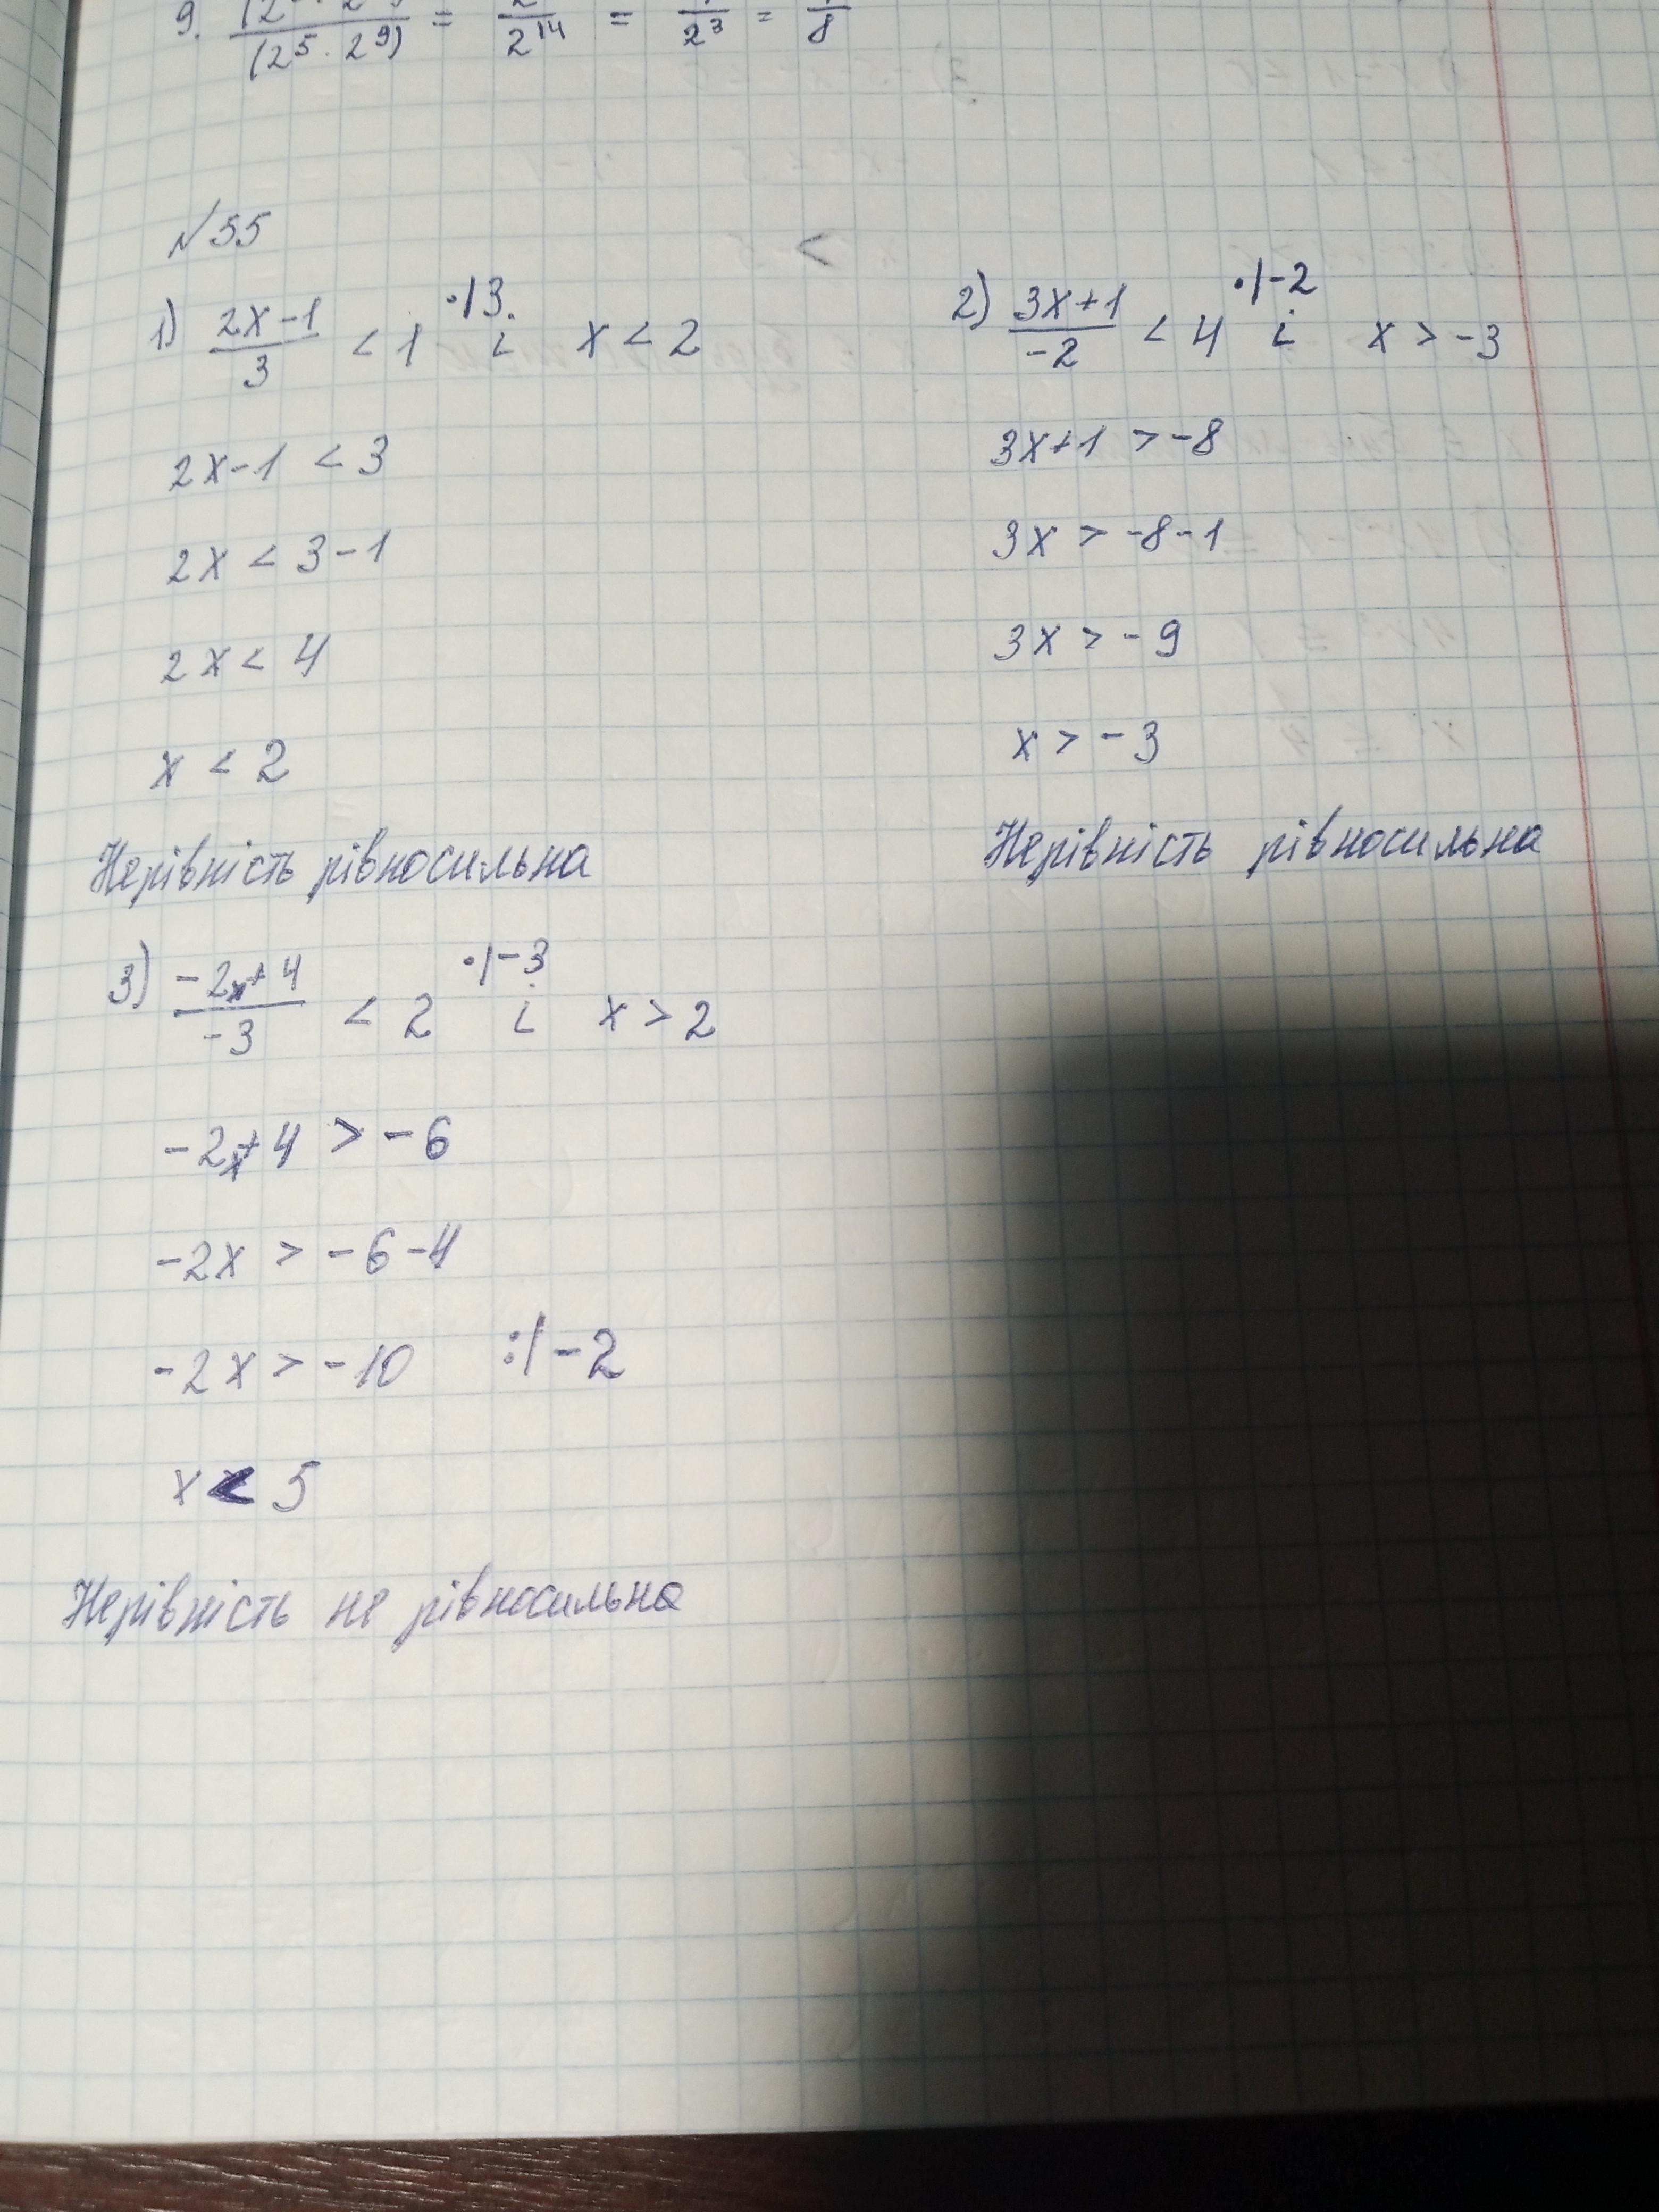 9. (2⁵ · 2⁹) = 2¹⁴ = 2³ = 8
№55
1) (2x-1)/3 < 1 ·|3. i x < 2
2x-1 < 3
2x < 3-1
2x < 4
x < 2
Нерівність рівносильна
2) (3x+1)/-2 < 4 ·|-2 i x > -3
3x+1 > -8
3x > -8-1
3x > -9
x > -3
Нерівність рівносильна
<
3) (-2x+4)/-3 < 2 ·|-3 i x > 2
-2x+4 > -6
-2x > -6-4
-2x > -10 :|-2
x < 5
Нерівність не рівносильна